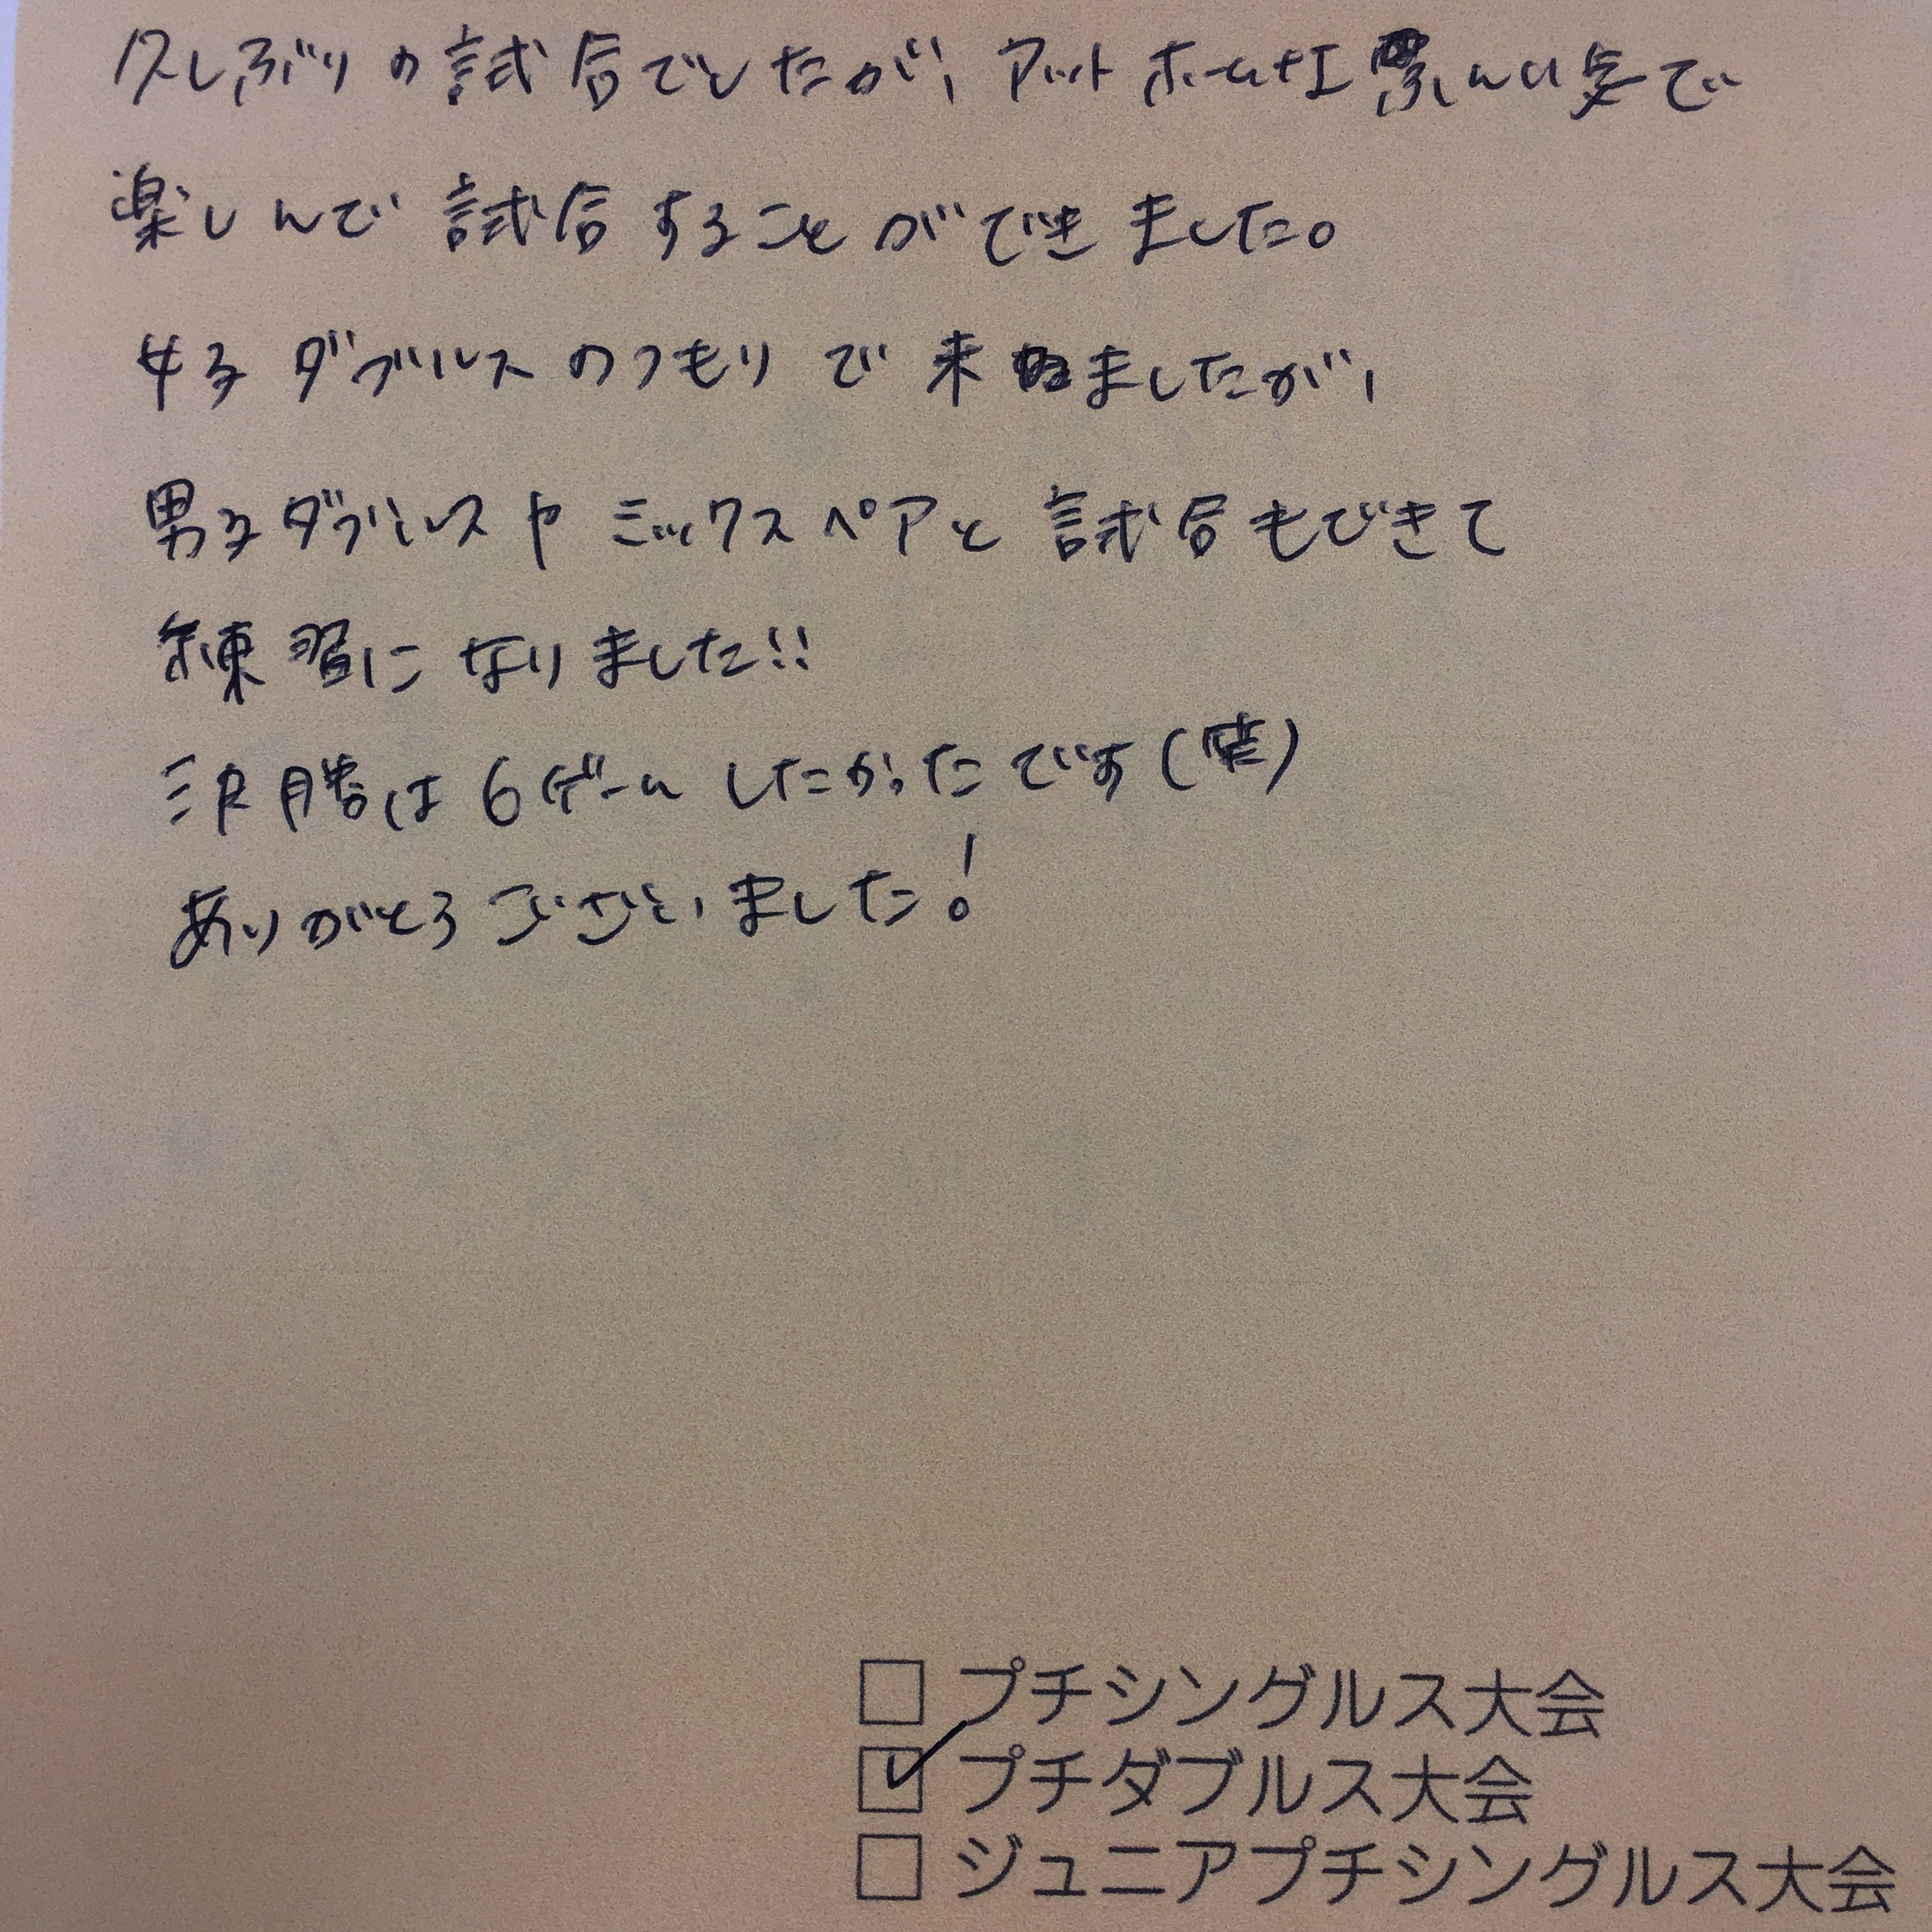 久しぶりの試合でしたが、アットホームな雰囲気で
楽しんで試合することができました。
女子ダブルスのつもりで来ましたが、
男子ダブルスやミックスペアと試合もできて
練習になりました!!
決勝は6ゲームしたかったです(笑)
ありがとうございました!
□ プチシングルス大会
☑ プチダブルス大会
□ ジュニアプチシングルス大会